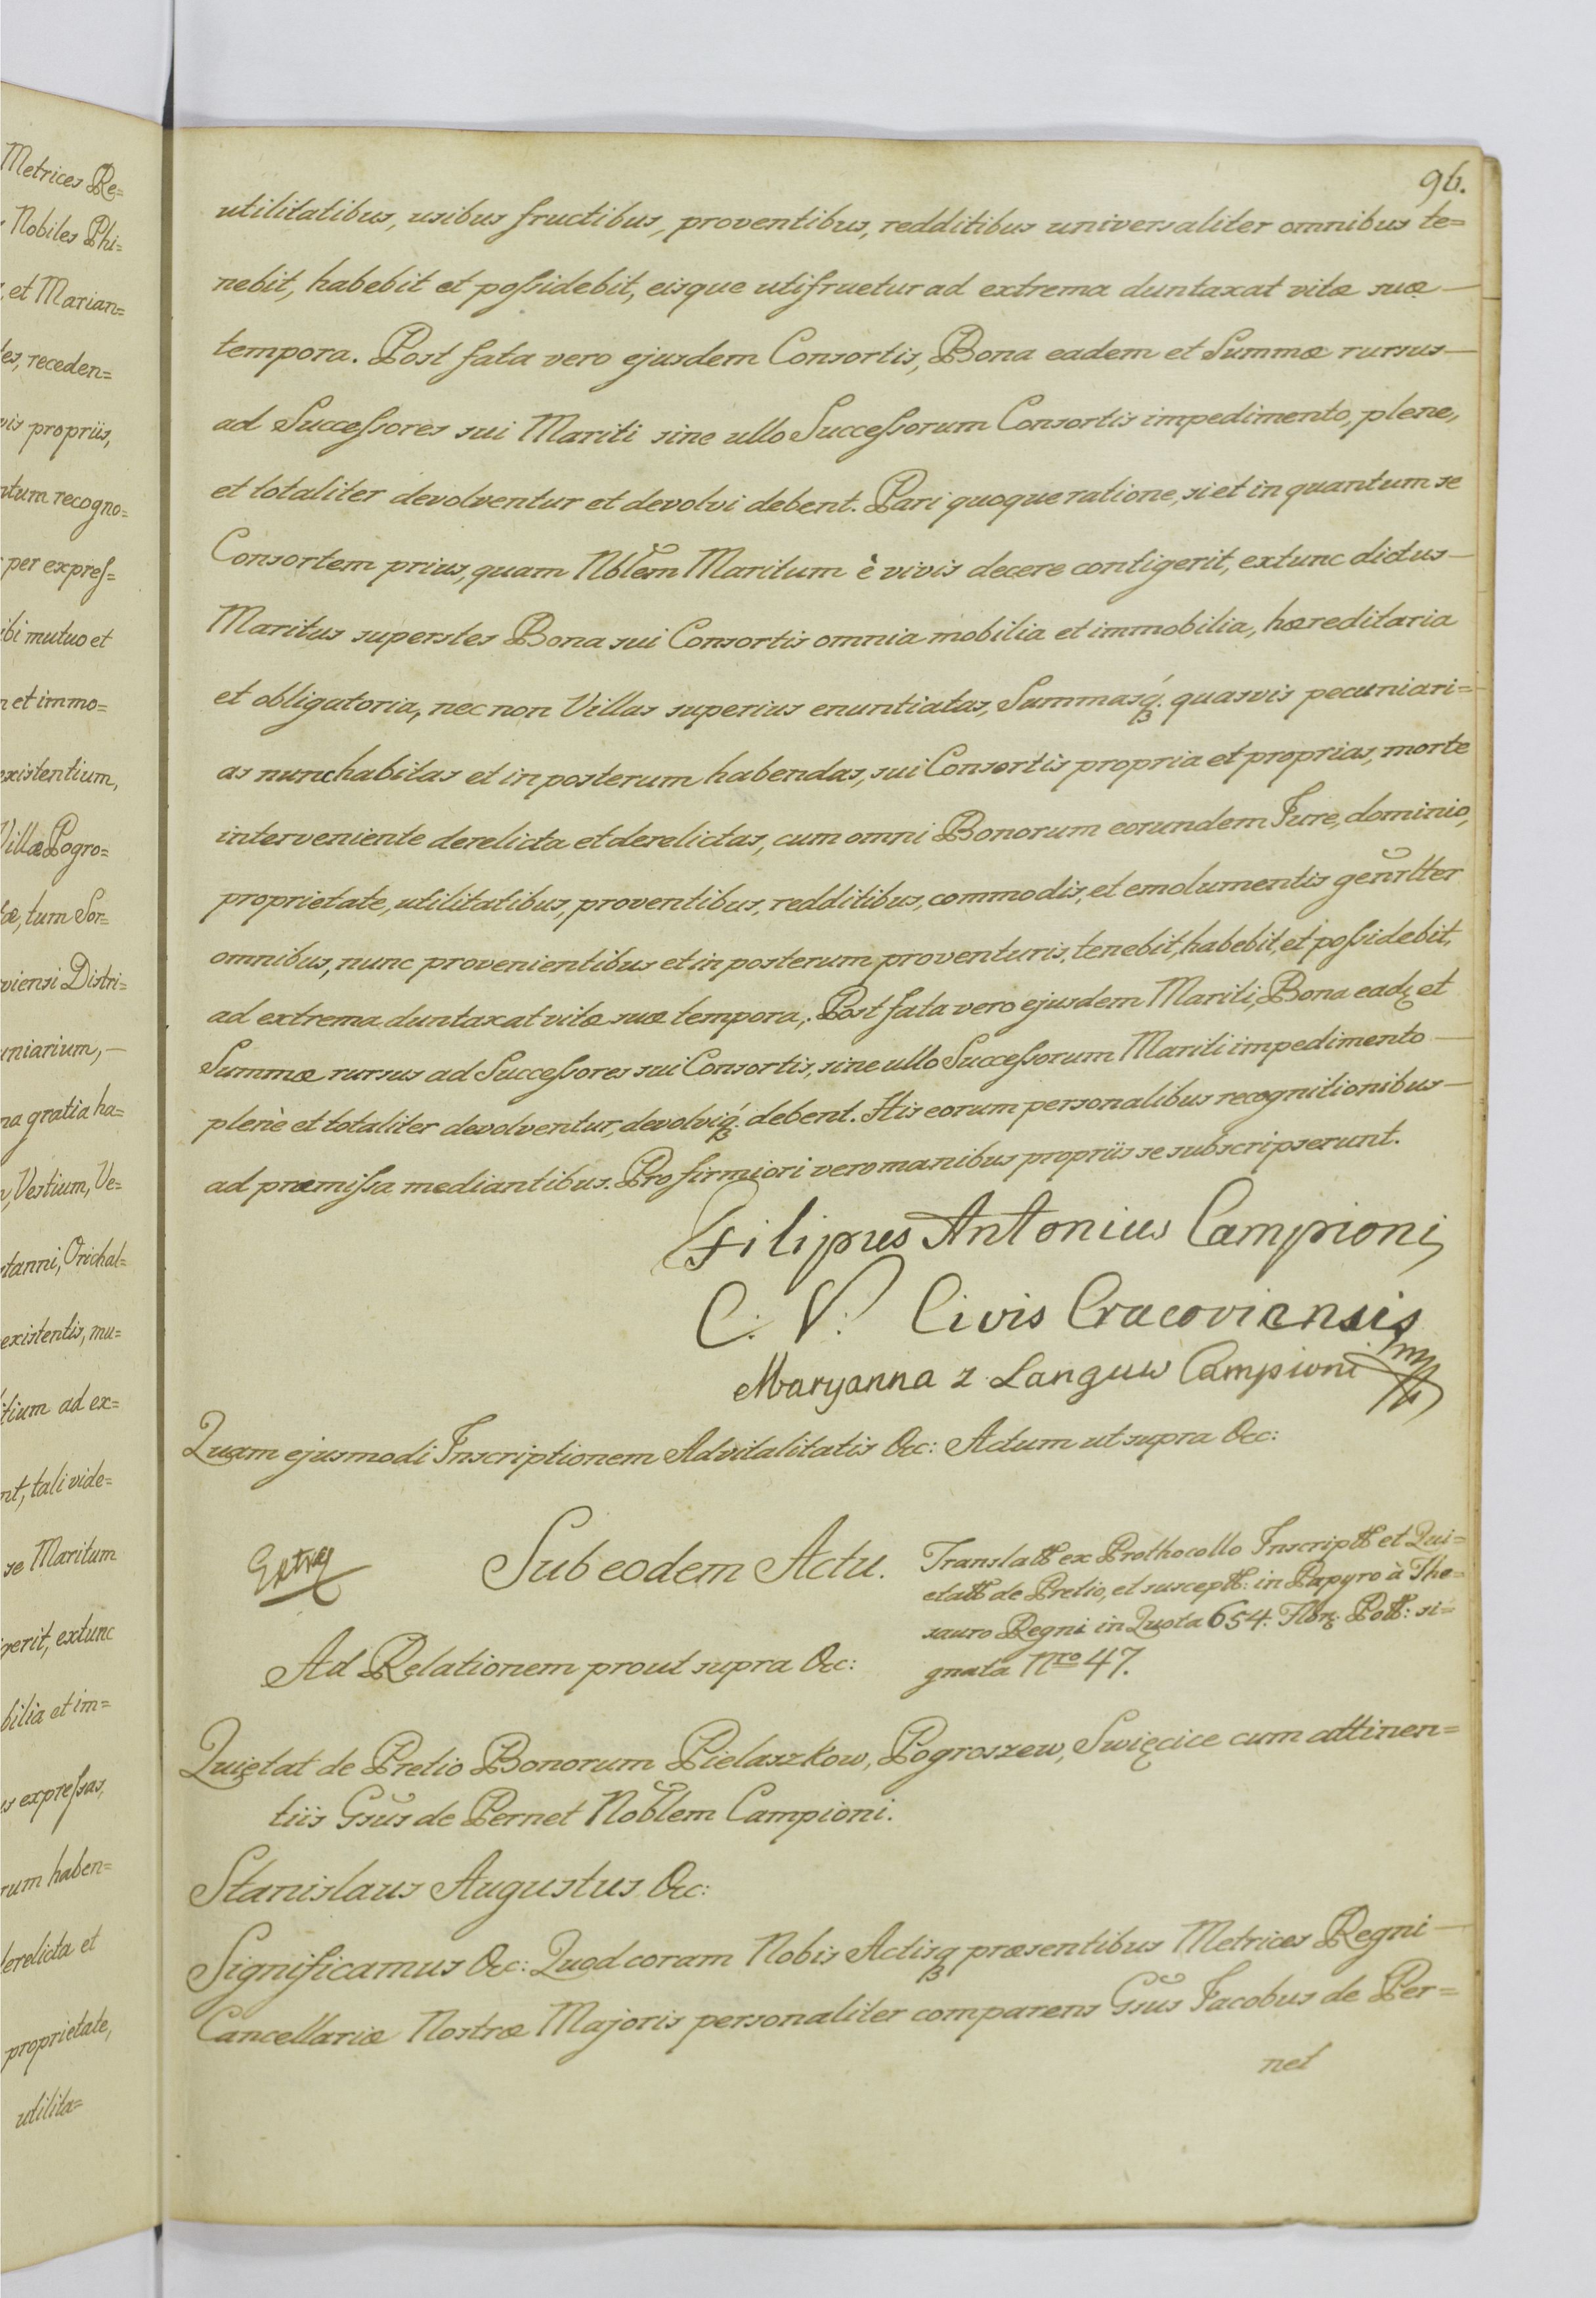 Metrices Re=
Nobiles Phi=
, et Marian=
tes, receden=
vis propriis,
ntum recogno=
per expreſ=
ibi mutuo et
n et immo=
existentium,
Villæ Pogro=
tæ, tum Sor=
viensi Distri=
uniarium, —
na gratia ha=
, Vestium, Ve=
stanni, Orichal=
existentis, mu=
itium ad ex=
nt, tali vide=
se Maritum
gerit, extunc
bilia et im=
is expreſsas,
rum haben=
derelicta et
proprietate,
utilita=
96.
utilitatibus, usibus fructibus, proventibus, redditibus universaliter omnibus te=
nebit, habebit et poſsidebit, eisque utifruetur ad extrema duntaxat vitæ suæ —
tempora. Post fata vero ejusdem Consortis, Bona eadem et Summæ rursus —
ad Succeſsores sui Mariti sine ullo Succeſsorum Consortis impedimento, plene,
et totaliter devolventur et devolvi debent. Pari quoque ratione, si et in quantum se
Consortem prius, quam Nblem Maritum è vivis decere contigerit, extunc dictus —
Maritus superstes Bona sui Consortis omnia mobilia et immobilia, hæreditaria
et obligatoria, nec non Villas superius enuntiatas, Summasq́. quasvis pecuniari=
as nunc habitas et in posterum habendas, sui Consortis propria et proprias, morte
interveniente derelicta et derelictas, cum omni Bonorum eorundem Jure, dominio,
proprietate, utilitatibus, proventibus, redditibus, commodis, et emolumentis genrltter
omnibus, nunc provenientibus et in posterum proventuris, tenebit, habebit, et poſsidebit,
ad extrema duntaxat vitæ suæ tempora,. Post fata vero ejusdem Mariti, Bona eadꝫ et
Summæ rursus ad Succeſsores sui Consortis, sine ullo Succeſsorum Mariti impedimento —
plenè et totaliter devolventur, devolviq́. debent. His eorum personalibus recognitionibus —
ad præmiſsa mediantibus. Pro firmiori vero manibus propriis se subscripserunt.
Filipus Antonius Campioni
C: V: Civis Cracoviensis
Maryanna z Languw Campioni mpp
Quam ejusmodi Inscriptionem Advitalitatis &c: Actum ut supra &c:
Extra
Sub eodem Actu.
Translatt ex Prothocollo Inscriptt et Qui=
etatt de Pretio, et susceptt: in Papyro à The=
sauro Regni in Quota 654. Flor. Pott: si=
gnata Nro 47.
Ad Relationem prout supra &c:
Quietat de Pretio Bonorum Pielaszkow, Pogroszew, Swięcice cum attinen=
tiis Gsus de Pernet Noblem Campioni.
Stanislaus Augustus &c:
Significamus &c: Quod coram Nobis Actisq præsentibus Metrices Regni —
Cancellariæ Nostræ Majoris personaliter comparens Gsus Jacobus de Per=
net